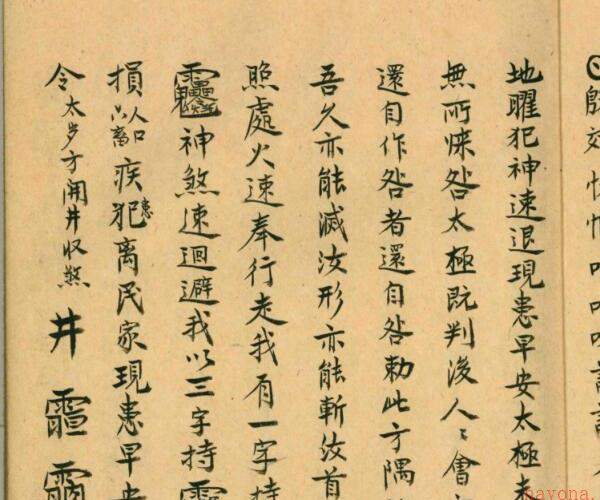 地曜犯神速退現患早安太極
無所悚咎太極既判後人〻會
還自作咎者還自咎勅此方隅
吾久亦能滅汝形亦能斬汝首
照處火速奉行走我有一字持
神煞速迴避我以三字持
損人口六畜疾患犯離民家現患早
令太岁方開井收煞 井
nayona.